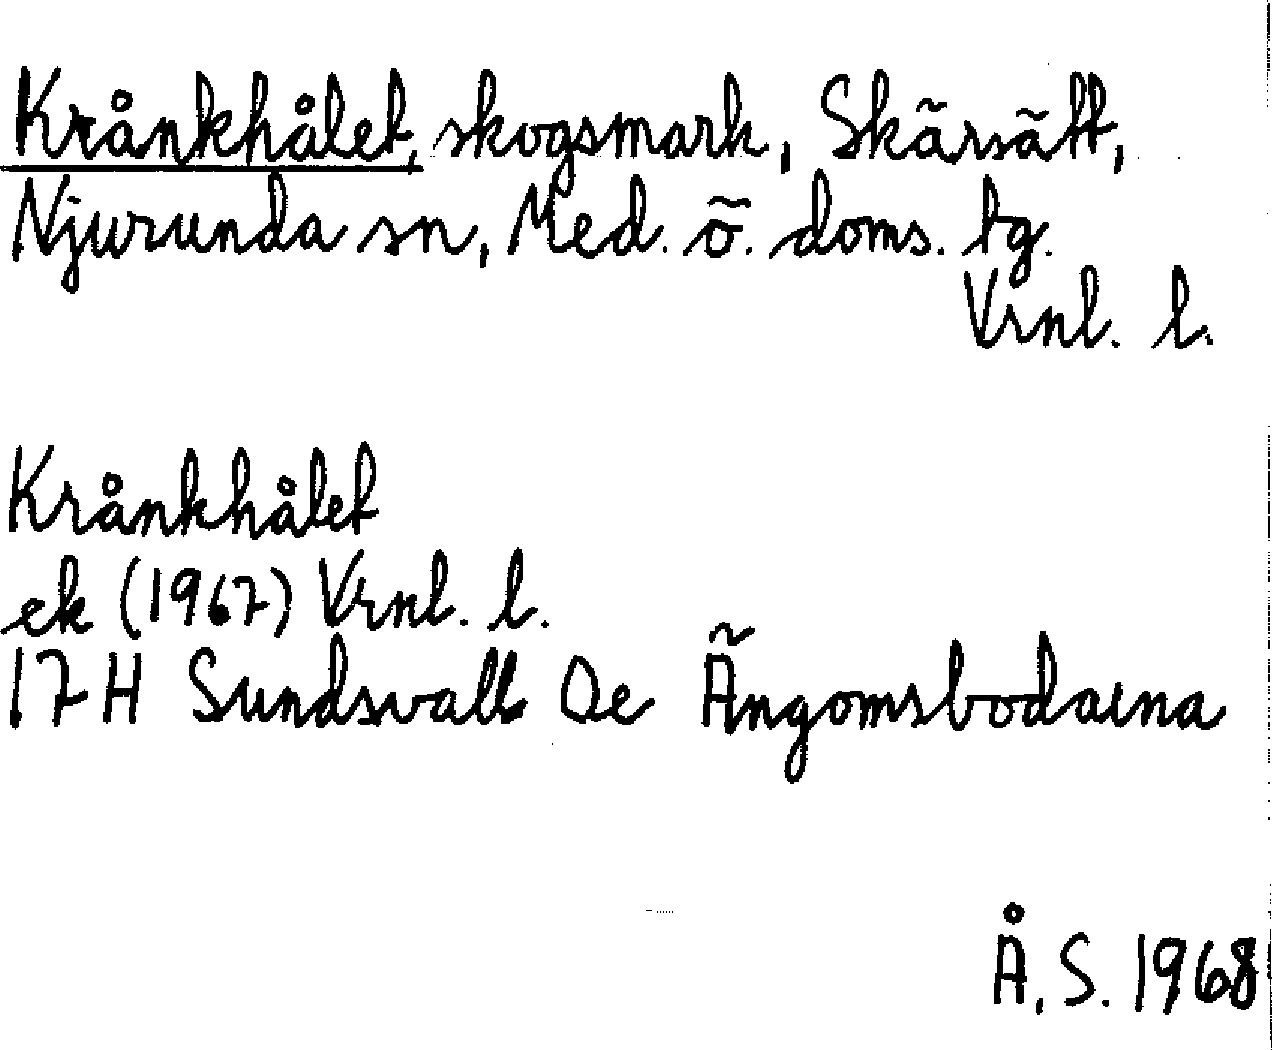 Krånkhålet, skogsmark, Skärsätt,
Njurunda sn, Med. ö. doms. tg.
Vrnl. l.
Krånkhålet
ek (1967) Vrnl. l.
17H Sundsvall De Ängomsbodarna
Å. S. 1968